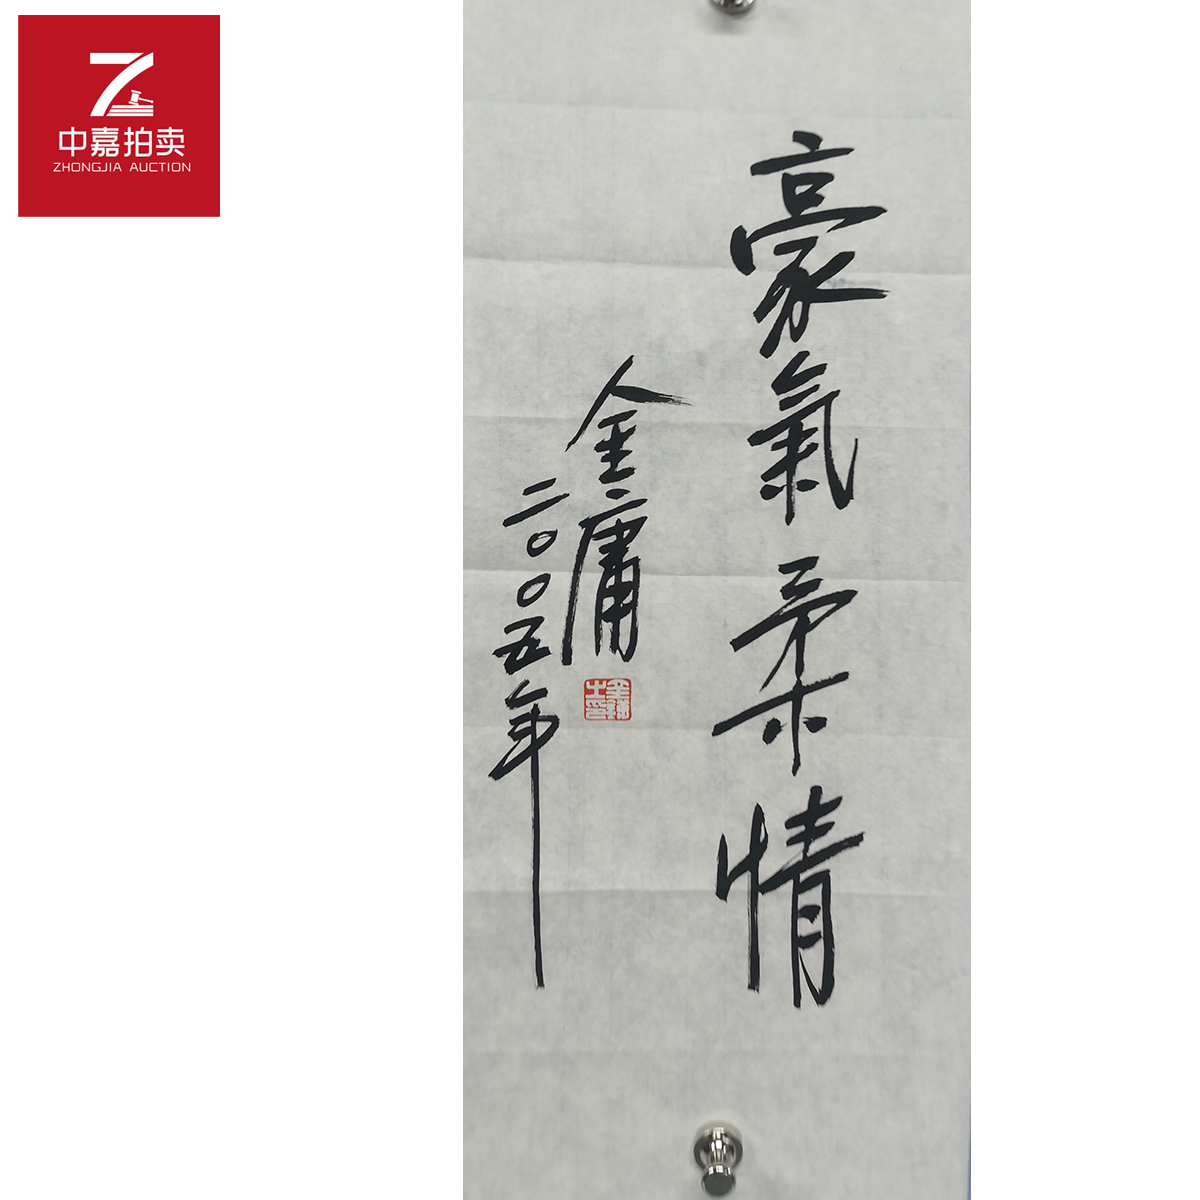 中嘉拍卖
ZHONGJIA AUCTION
豪氣柔情
金庸
二〇〇五年
金庸之印